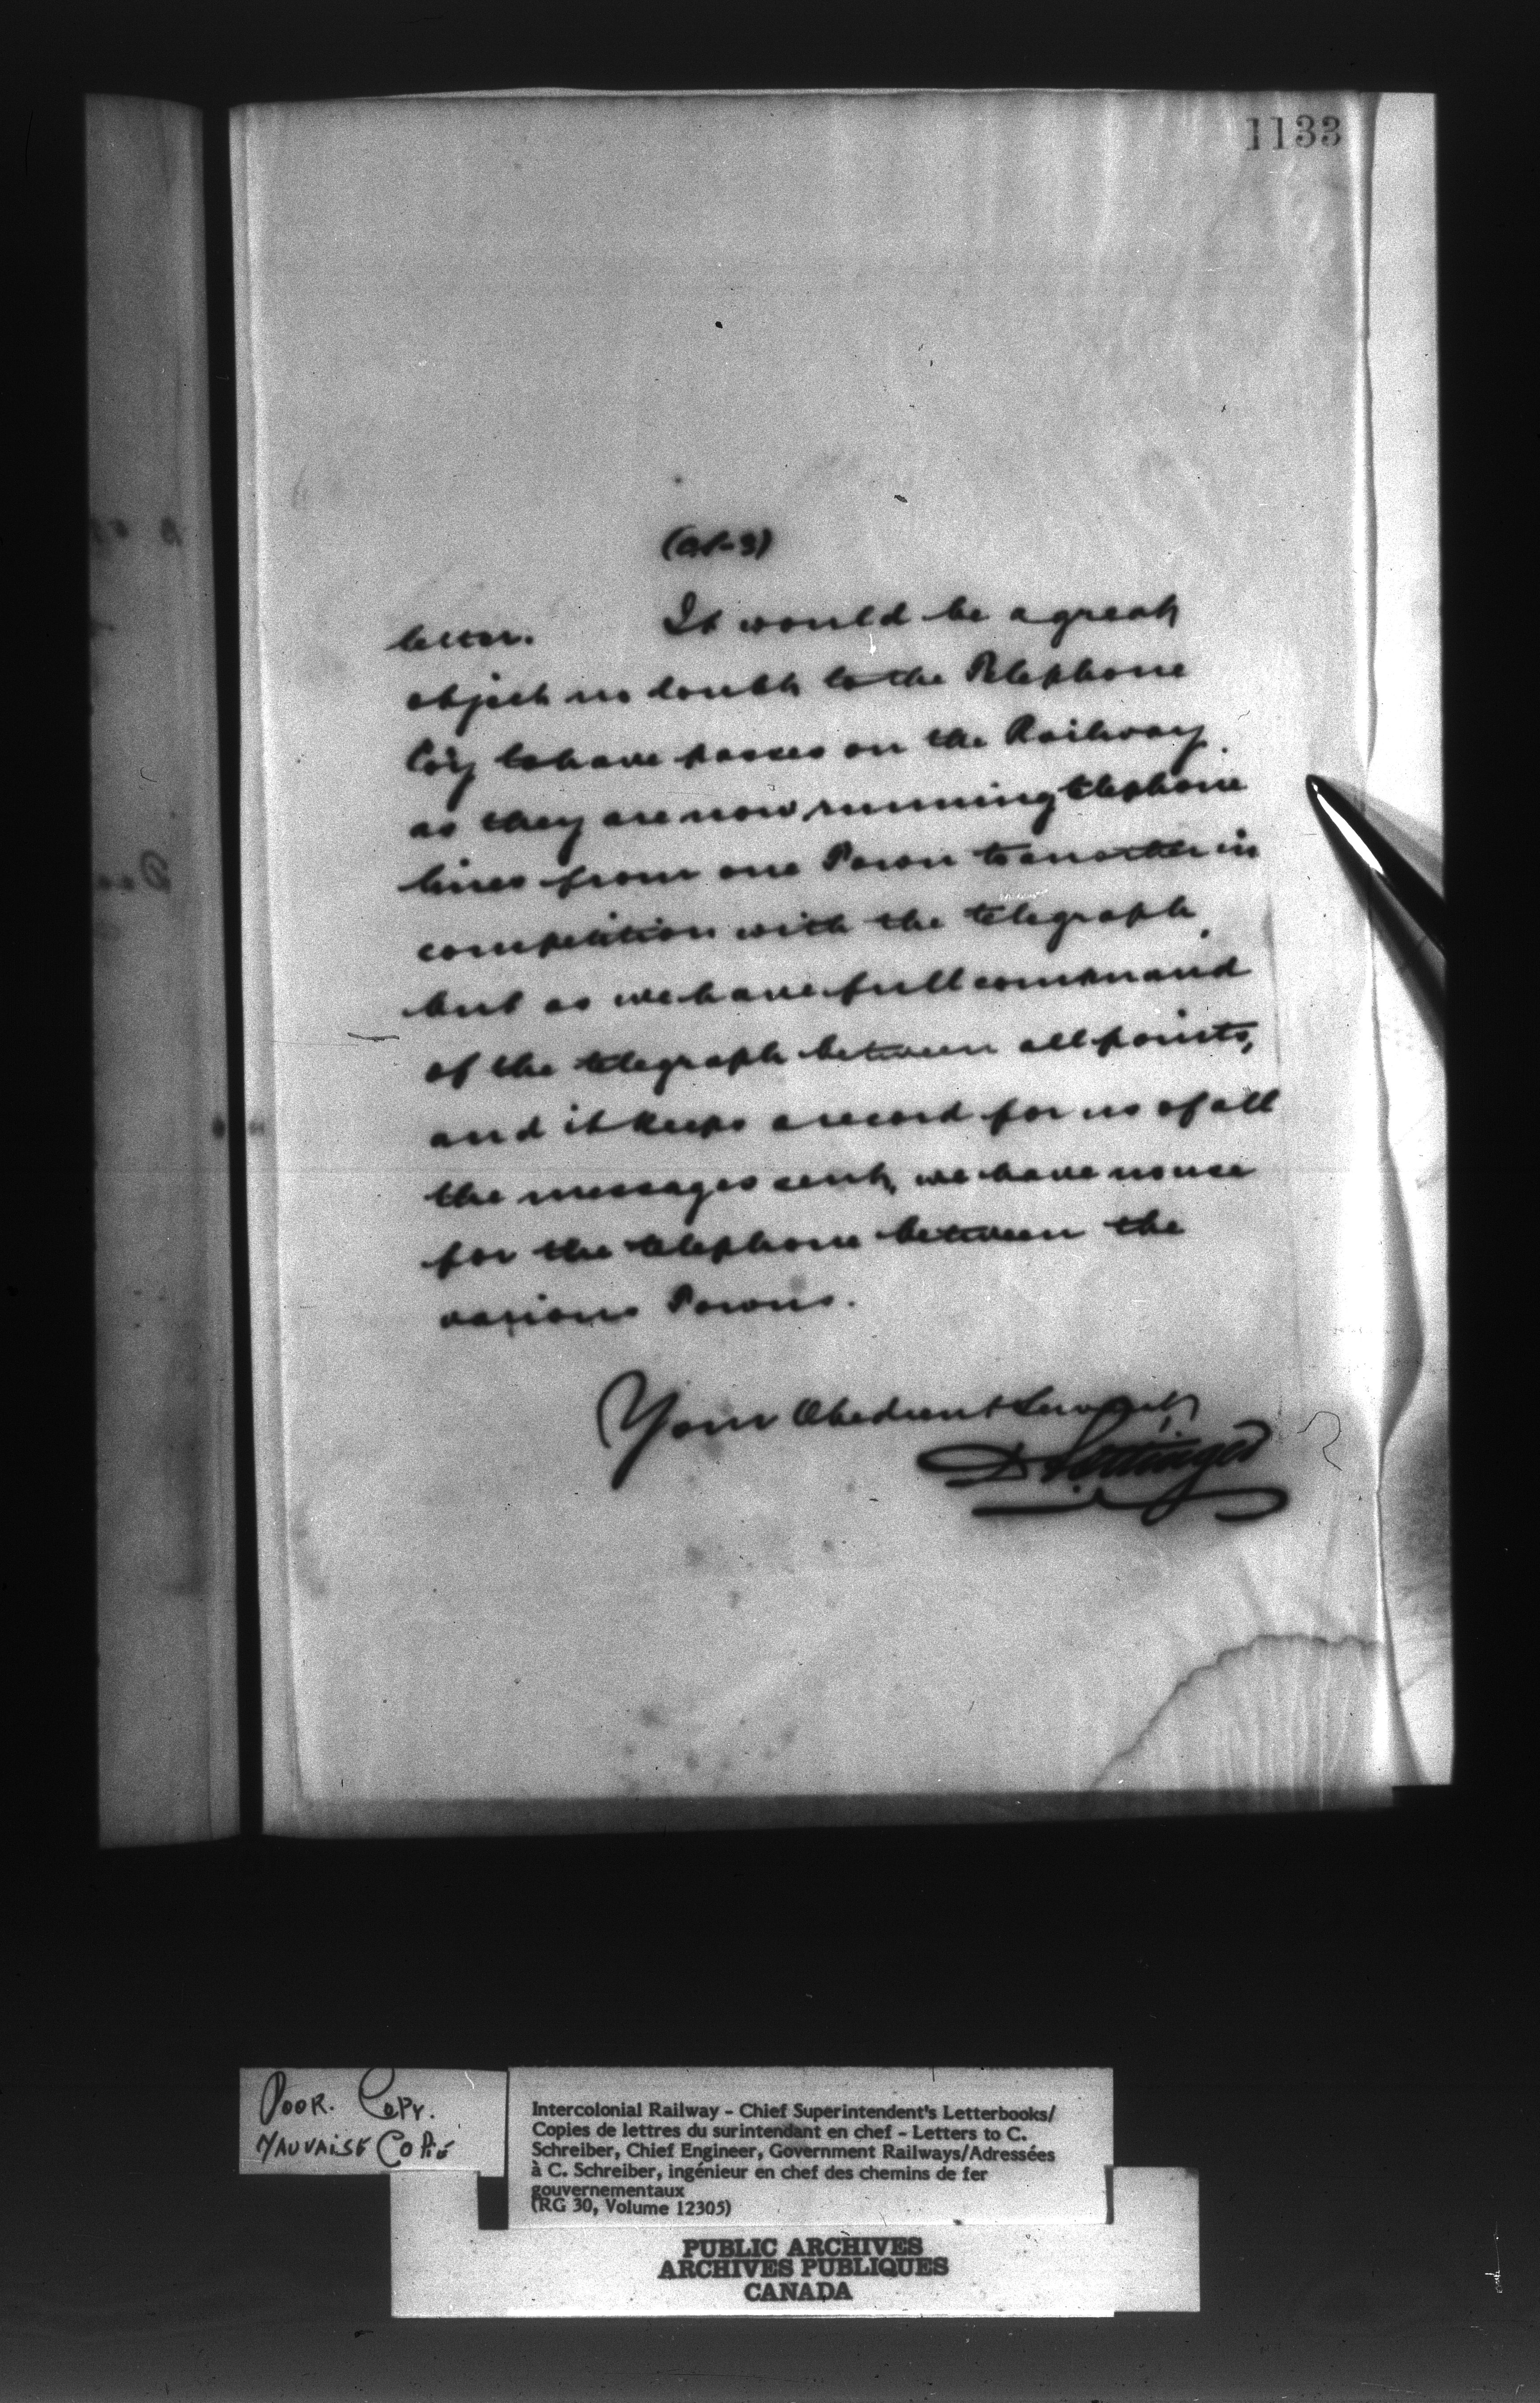 1133
letter. It would be a great
object no doubt to the Telephone
Co'y to have passes on the Railway
as they are now running telephone
lines from one Town to another in
competition with the telegraph,
but as we have full command
of the telegraph between all points,
and it keeps a record for us of all
the messages sent, we have no use
for the telephone between the
various Towns.
Your Obedient Servant,
D Pottinger
POOR. COPY.
MAUVAISE COPIE
Intercolonial Railway - Chief Superintendent's Letterbooks/
Copies de lettres du surintendant en chef - Letters to C.
Schreiber, Chief Engineer, Government Railways/Adressées
à C. Schreiber, ingénieur en chef des chemins de fer
gouvernementaux
(RG 30, Volume 12305)
PUBLIC ARCHIVES
ARCHIVES PUBLIQUES
CANADA